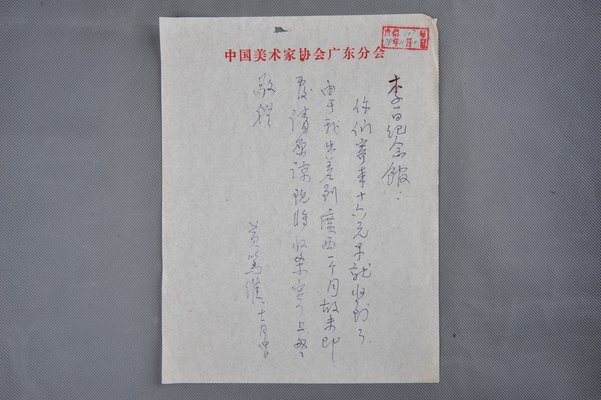 中国美术家协会广东分会
李白纪念馆：
你们寄来十六元早就收到了
由于我出差到广西一个月故未即
复请原谅现将收条寄上祭
敬礼
黄笃维 十一月